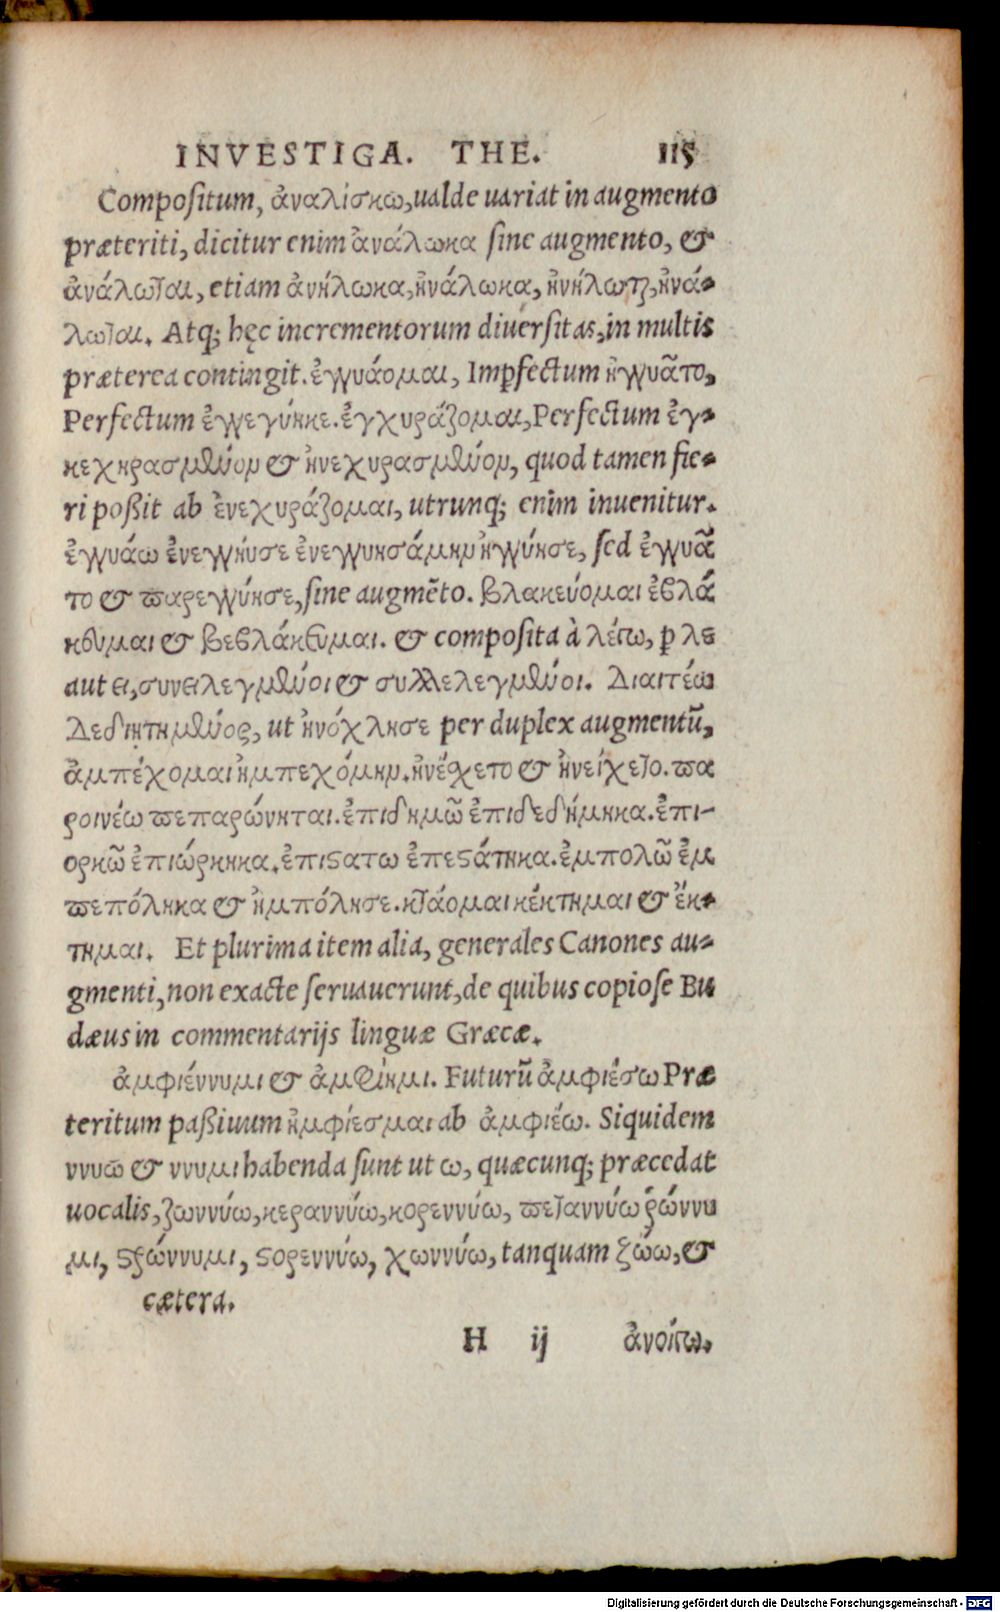 INVESTIGA. THE. 115
Compositum, ἀναλίσκω, ualde uariat in augmento
præteriti, dicitur enim ἀνάλωκα sine augmento, &
ἀνάλωται, etiam ἀνήλωκα, ἠνάλωκα, ἠνήλωται, ἠνά-
λωται. Atq; hęc incrementorum diuersitas, in multis
præterea contingit. ἐγγυάομαι, Imꝑfectum ἠγγυᾶτο,
Perfectum ἐγγεγύηκε. ἐγχυράζομαι, Perfectum ἐγ-
κεχηρασμένον & ἠνεχυρασμένον, quod tamen fie-
ri poßit ab ἐνεχυράζομαι, utrunq; enim inuenitur.
ἐγγυάω ἐνεγγήυσε ἐνεγγυησάμην ἠγγύησε, sed ἐγγυᾶ
το & παρεγγύησε, sine augmẽto. βλακεύομαι ἐβλά
κευμαι & βεβλάκευμαι. & composita à λέγω, ꝑ λε
aut ει, συνειλεγμένοι & συλλελεγμένοι. Διαιτέω
Δεδιητημένος, ut ἠνόχλησε per duplex augmentũ,
ἀμπέχομαι ἠμπεχόμην. ἠνέχετο & ἠνείχετο. πα
ροινέω πεπαρώνηται. ἐπιδημῶ ἐπιδεδήμηκα. ἐπι-
ορκῶ ἐπιώρκηκα. ἐπιστατω ἐπεστάτηκα. ἐμπολῶ ἐμ
πεπόληκα & ἠμπόλησε. κτάομαι κέκτημαι & ἔκ-
τημαι. Et plurima item alia, generales Canones au-
gmenti, non exacte seruauerunt, de quibus copiose Bu
dæus in commentarijs linguæ Græcæ.
ἀμφιέννυμι & ἀμφίημι. Futurũ ἀμφιέσω Præ
teritum paßiuum ἠμφίεσμαι ab ἀμφιέω. Siquidem
ννυω & ννυμι habenda sunt ut ω, quæcunq; præcedat
uocalis, ζωννύω, κεραννύω, κορεννύω, πεταννύω ῥώννυ
μι, στρώννυμι, στορεννύω, χωννύω, tanquam ζώω, &
cætera.
H ij ἀνοίγω.
Digitalisierung gefördert durch die Deutsche Forschungsgemeinschaft - DFG